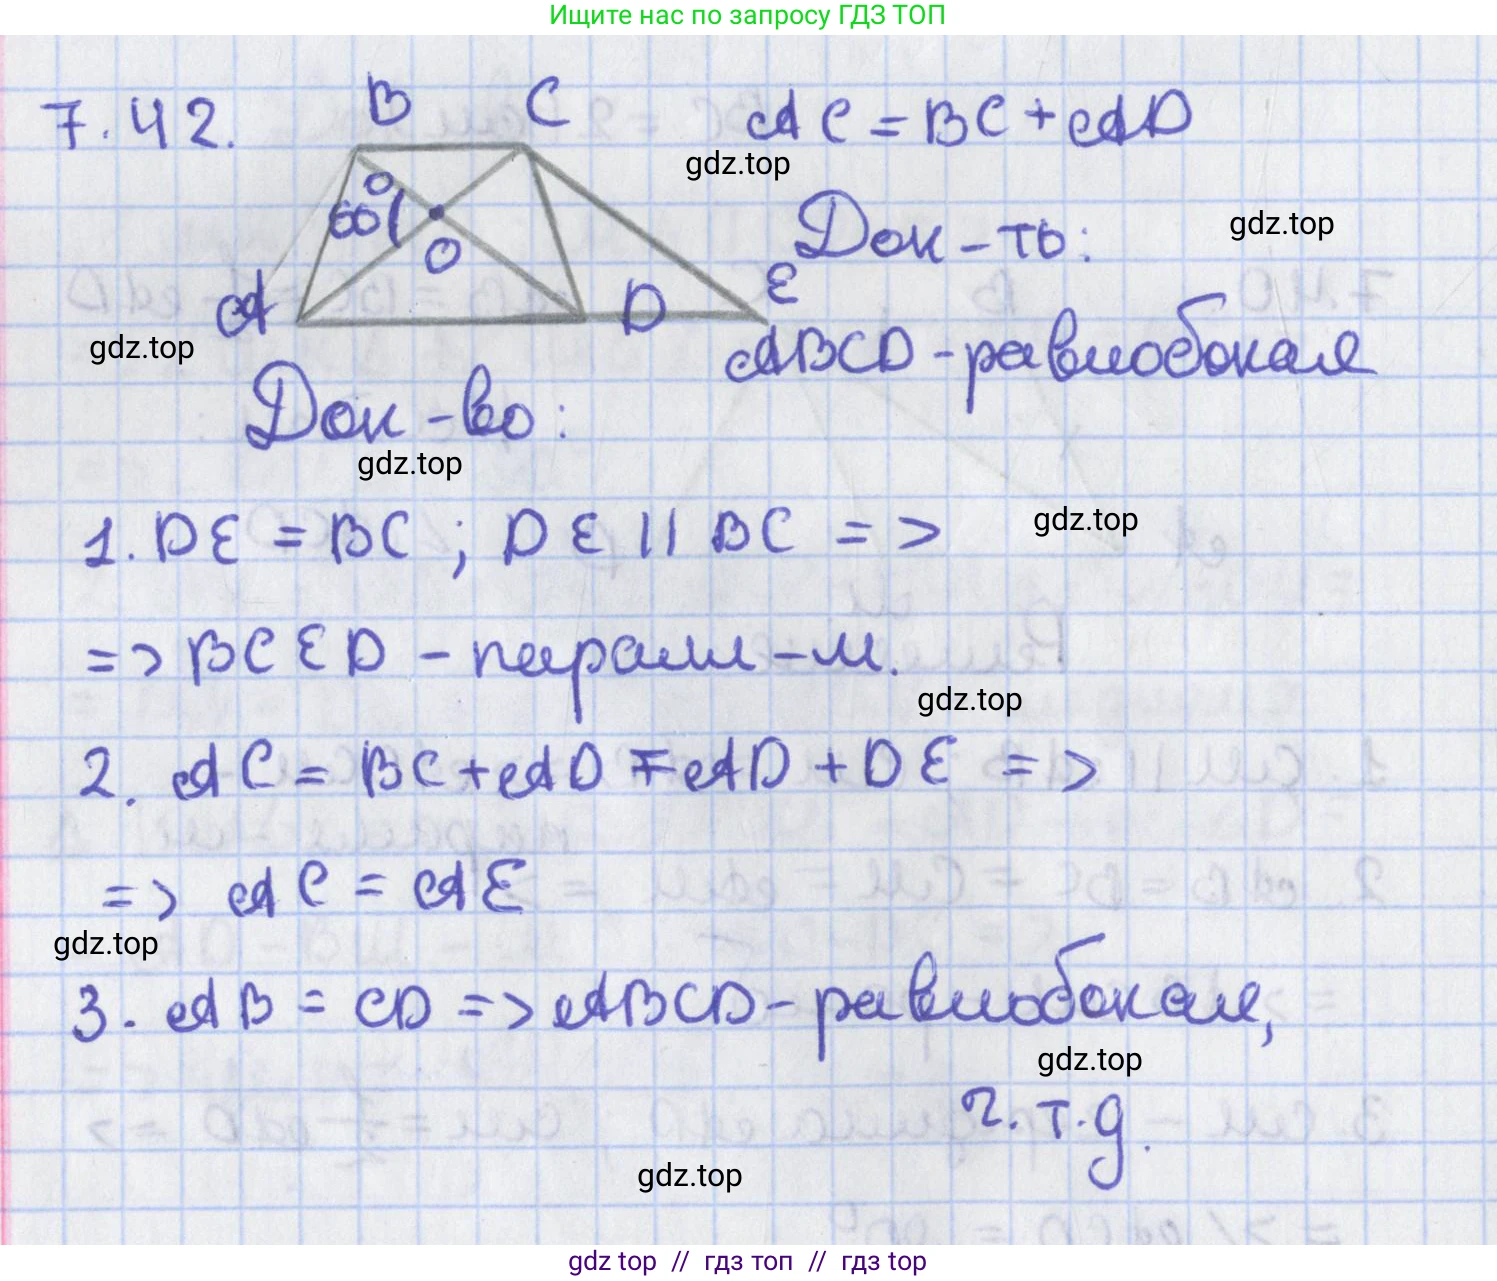 Ищите нас по запросу ГДЗ ТОП
7.42.
B C
AC = BC + AD
gdz.top
60°
O
Док-ть:
gdz.top
A D E
gdz.top
ABCD - равнобокая
Док-во:
gdz.top
1. DE = BC ; DE || BC =>
gdz.top
=> BCED - паралл-м.
gdz.top
2. AC = BC + AD = AD + DE =>
=> AC = AE
gdz.top
3. AB = CD => ABCD - равнобокая,
gdz.top
ч.т.д.
gdz.top
gdz top // гдз топ // гдз top